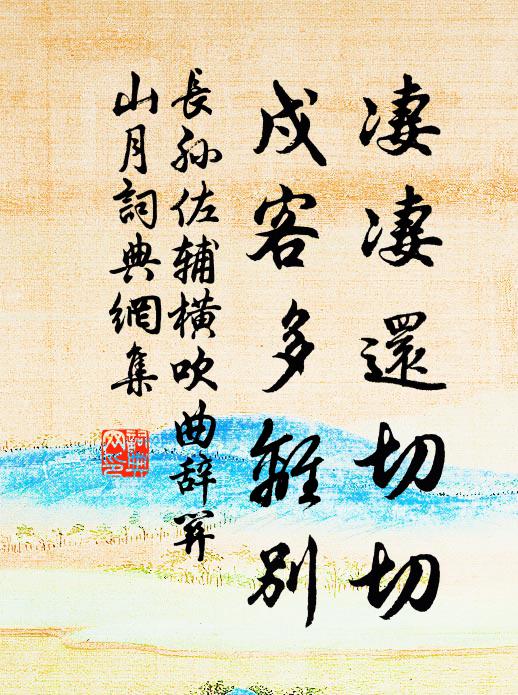 凄凄還切切
戍客多離別
長孙佐辅横吹曲辞関
山月詞典網集